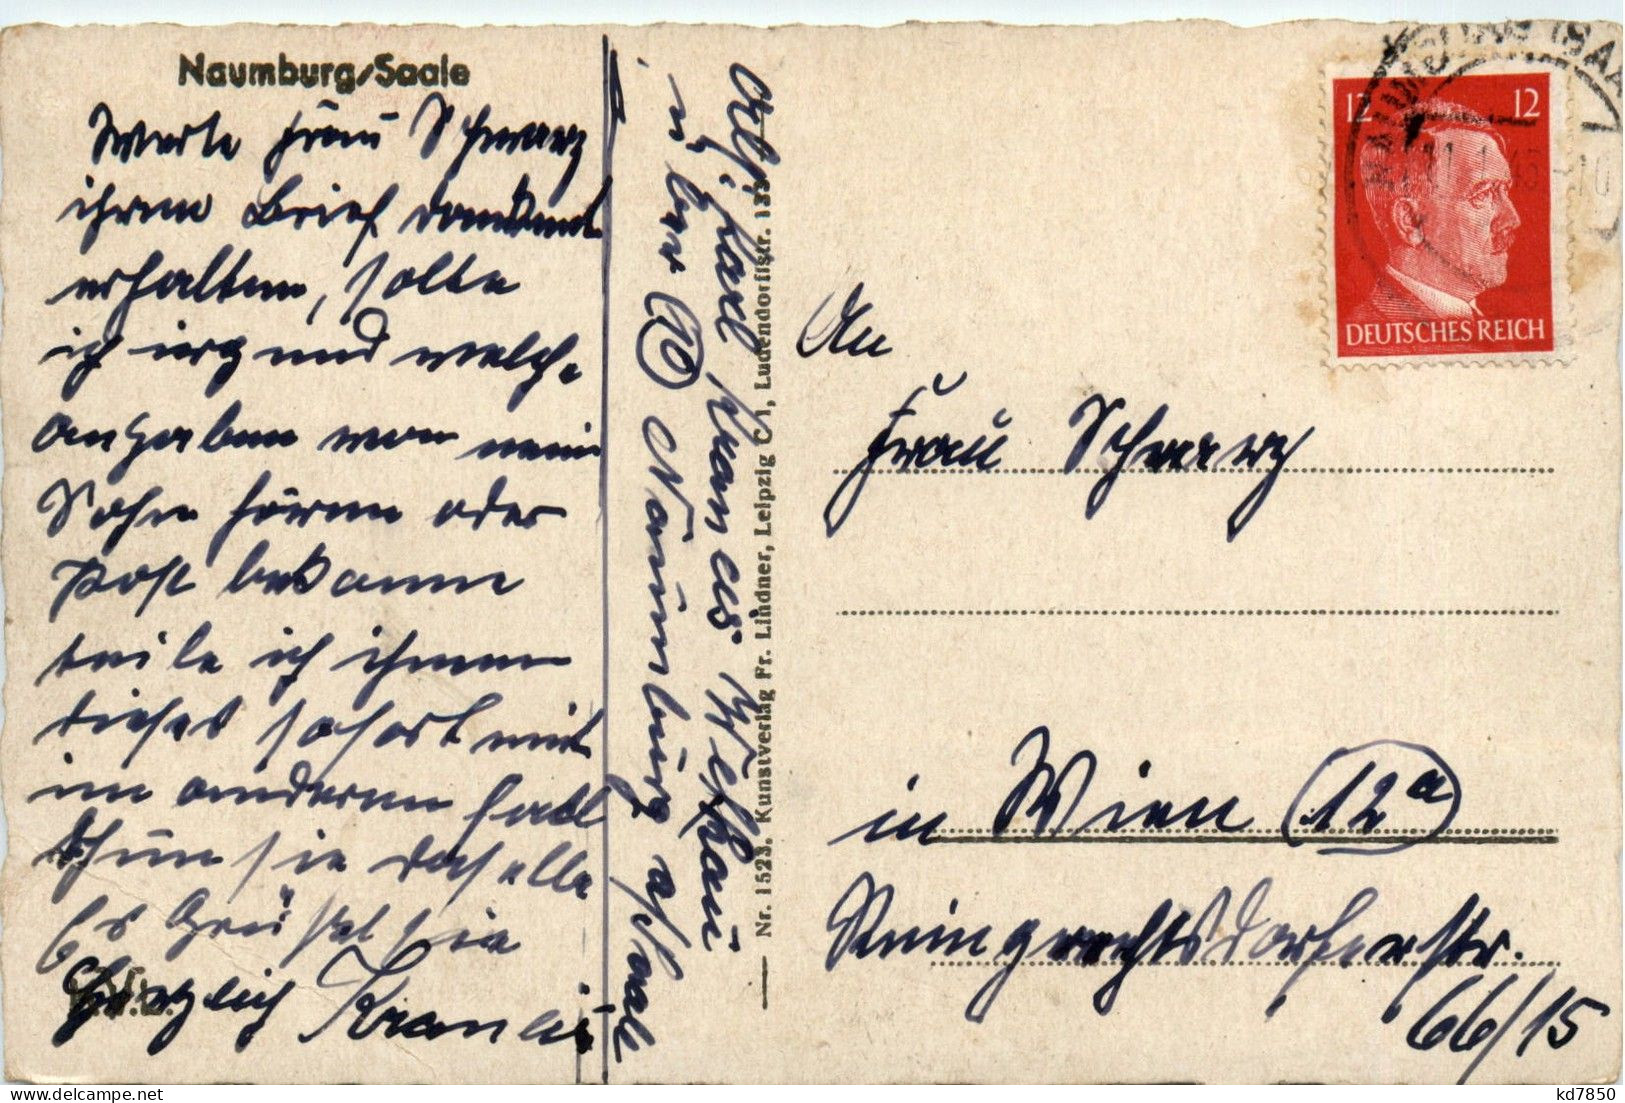 Naumburg/Saale
Werte Frau Schwarz
ihren Brief dankend
erhalten, sollte
ich irgend welche
Angaben von mein
Sohn hören oder
Post bekomme
teile ich ihnen
dieses sofort mit
im anderen Fall
thun sie dasselbe
Es Grüßet sie
Herzlich
Abs.
über
Naumburg a/Saale
Nr. 1523. Kunstverlag Fr. Lindner, Leipzig C 1, Ludendorffstr. 13
NAUMBURG (SAA
12 12
DEUTSCHES REICH
An
Frau Schwarz
in Wien 12a
66/15
kd7850